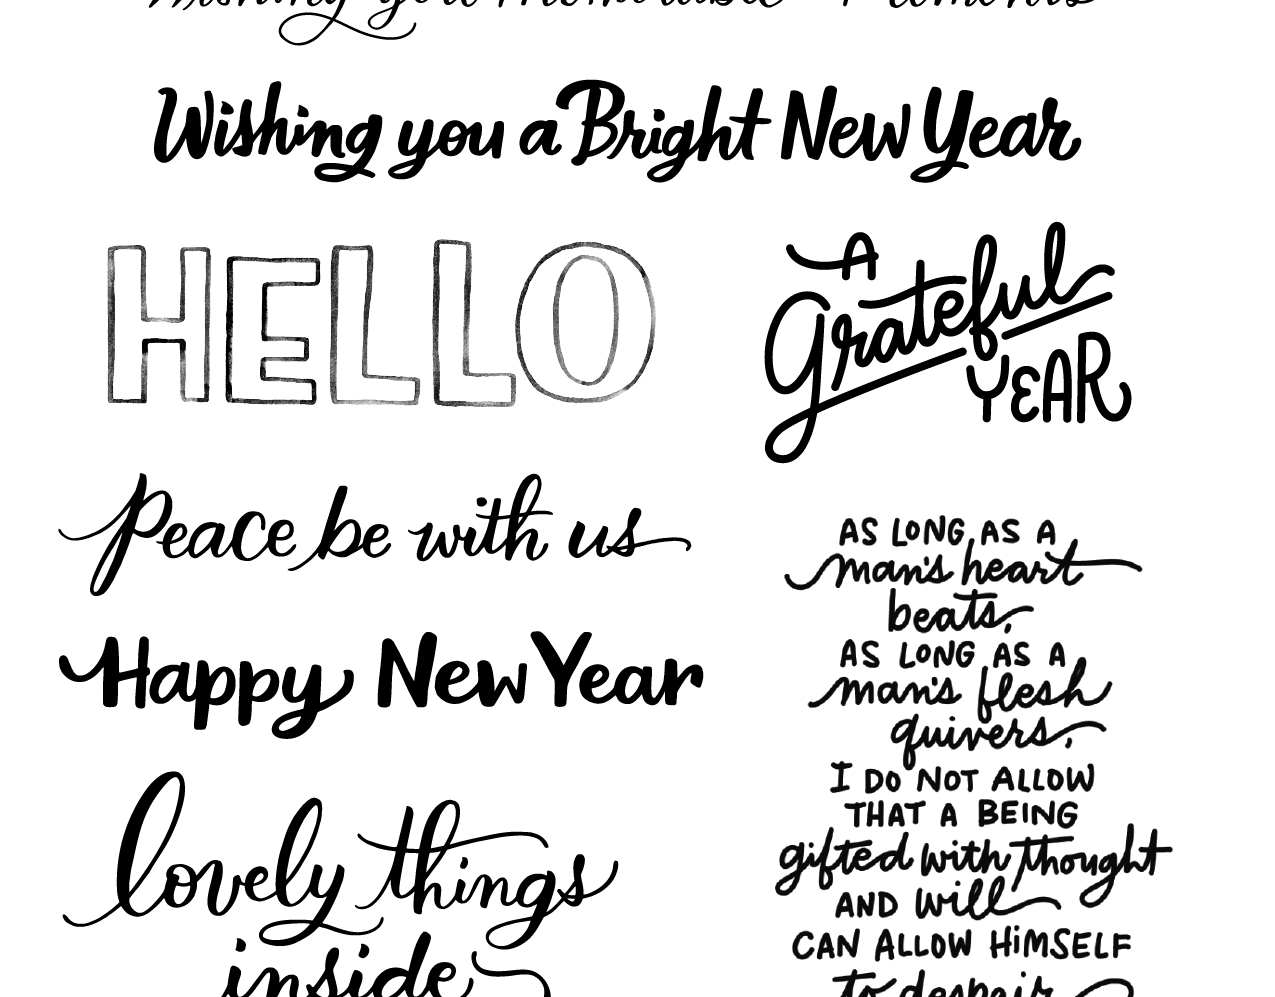 Wishing you Memorable Moments
Wishing you a Bright New Year
HELLO
A
Grateful
YEAR
Peace be with us
Happy New Year
lovely things
inside
AS LONG AS A
man's heart
beats,
AS LONG AS A
man's flesh
quivers,
I DO NOT ALLOW
THAT A BEING
gifted with thought
AND will
CAN ALLOW HiMSELF
to despair